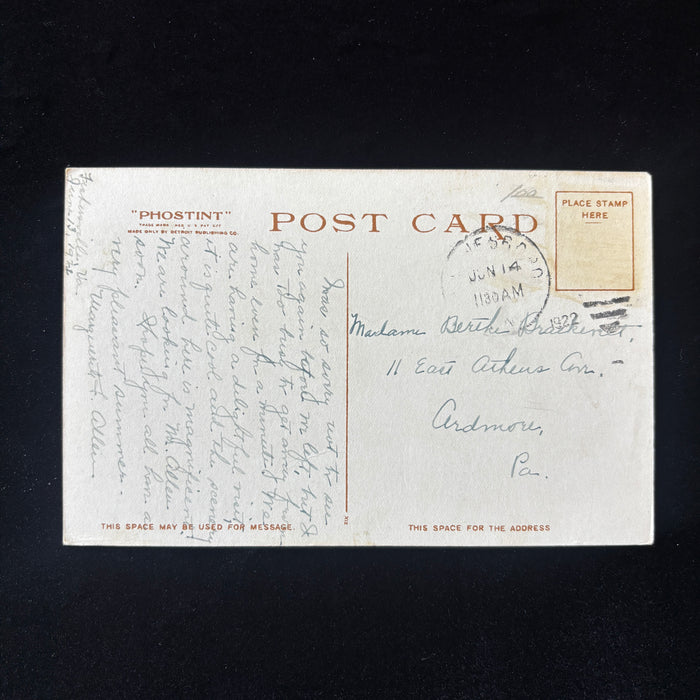 "PHOSTINT"
TRADE MARK REG. U.S. PAT. OFF.
MADE ONLY BY DETROIT PUBLISHING CO.
POST CARD
PLACE STAMP
HERE
100
JUN 14
1130 AM
1922
June 13, 1922
Was so sorry not to see
you again before we left but I
was too busy to get away from
home even for a minute. We
are having a delightful visit
it is quite cool and the scenery
around here is magnificent.
We are looking for Mr. Allen
soon. Hope you all have a
very pleasant summer.
Marguerite L. Allen
Madame Berthe
11 East Athens Ave. -
Ardmore,
Pa.
THIS SPACE MAY BE USED FOR MESSAGE.
THIS SPACE FOR THE ADDRESS